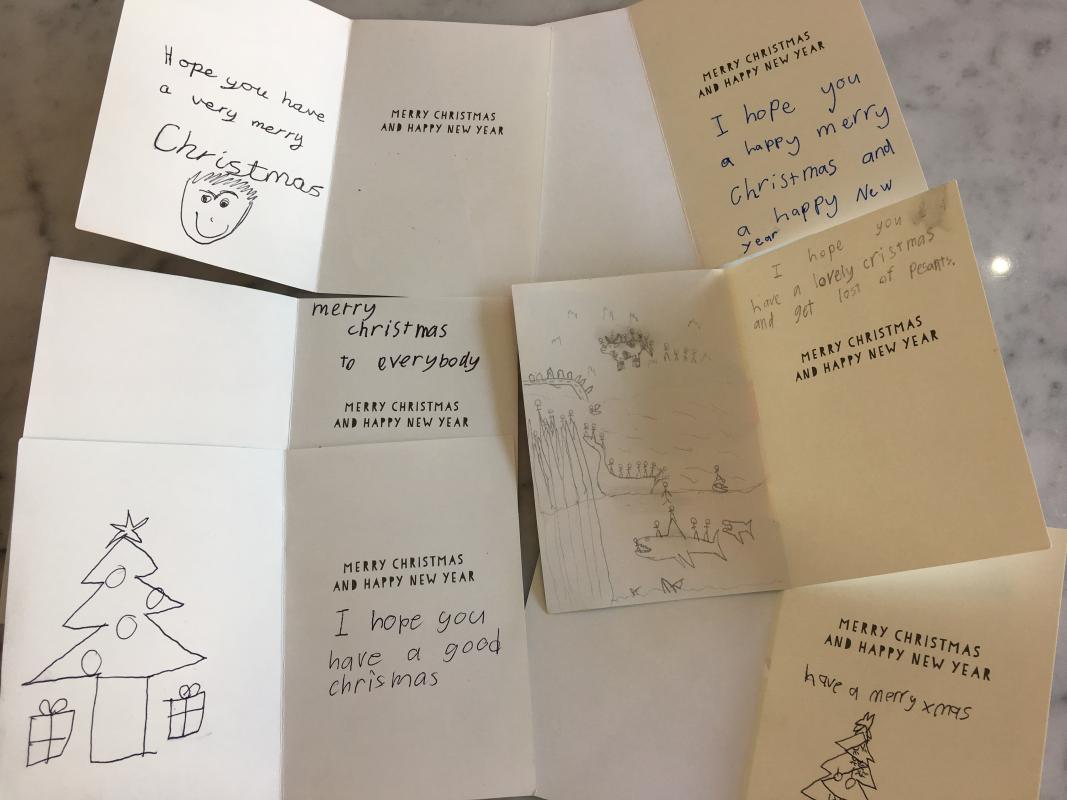 Hope you have
a very merry
Christmas
MERRY CHRISTMAS
AND HAPPY NEW YEAR
MERRY CHRISTMAS
AND HAPPY NEW YEAR
I hope you
a happy merry
Christmas and
a happy New
year
merry
christmas
to everybody
MERRY CHRISTMAS
AND HAPPY NEW YEAR
I hope you
have a lovely cristmas
and get lost of Pesants.
MERRY CHRISTMAS
AND HAPPY NEW YEAR
MERRY CHRISTMAS
AND HAPPY NEW YEAR
I hope you
have a good
chrismas
MERRY CHRISTMAS
AND HAPPY NEW YEAR
have a merry xmas